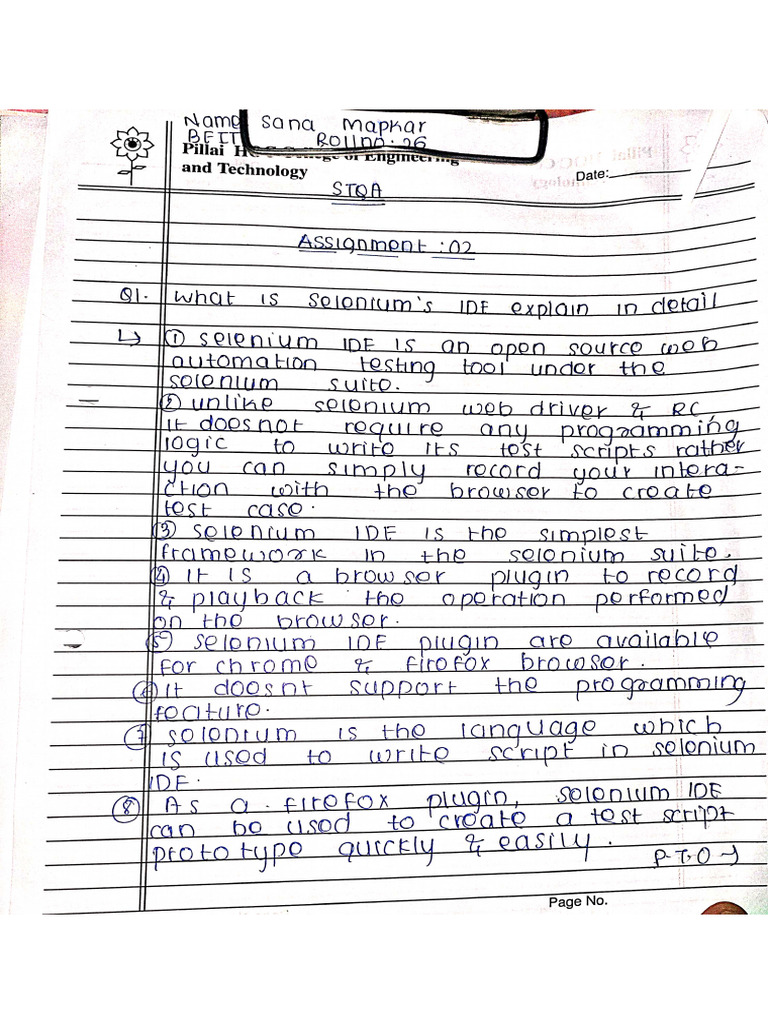 Name Sana Mapkar
BEIT Rollno: 26
Pillai H College of Engineering
and Technology
Date:
STQA
Assignment : 02
Q1. What is Selenium's IDE explain in detail
↳ ① Selenium IDE is an open source web
automation testing tool under the
selenium suite.
② unlike selenium web driver & RC
it doesnot require any programming
logic to write its test scripts rather
you can simply record your intera-
ction with the browser to create
test case.
③ Selenium IDE is the simplest
framework in the selenium suite.
④ it is a browser plugin to record
& playback the operation performed
on the browser.
⑤ Selenium IDE plugin are available
for chrome & firefox browser.
⑥ it doesnt support the programming
feature.
⑦ Selenium is the language which
is used to write script in selenium
IDE.
⑧ As a firefox plugin, selenium IDE
can be used to create a test script
prototype quickly & easily.
P.T.O →
Page No.